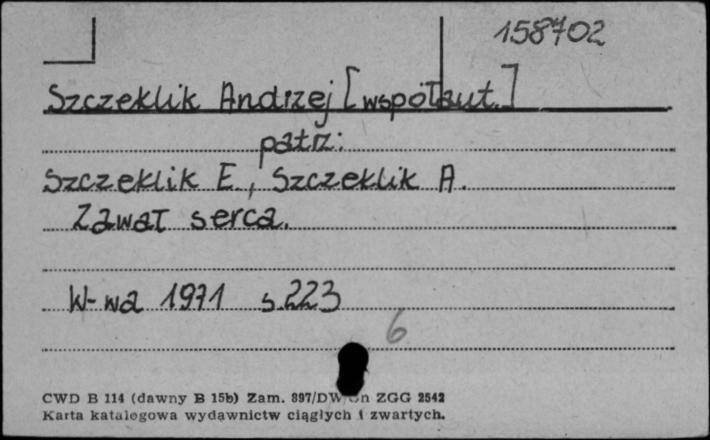 158702
Szczeklik Andrzej [współaut.]
patrz:
Szczeklik E., Szczeklik A.
Zawał serca.
W-wa 1971 s.223
6
CWD B 114 (dawny B 15b) Zam. 897/DW/ ZGG 2542
Karta katalogowa wydawnictw ciągłych i zwartych.